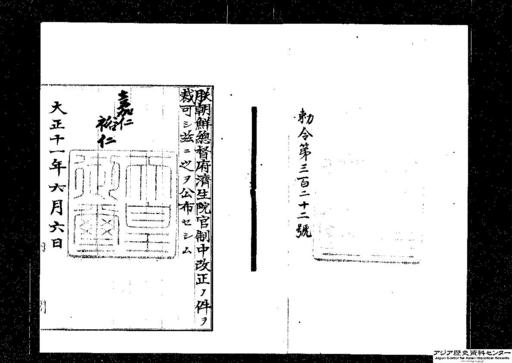 勅令第三百二十二號
朕朝鮮總督府濟生院官制中改正ノ件ヲ
裁可シ茲ニ之ヲ公布セシム
嘉仁
裕仁
天皇
御璽
大正十一年六月六日
アジア歴史資料センター
Japan Center for Asian Historical Records